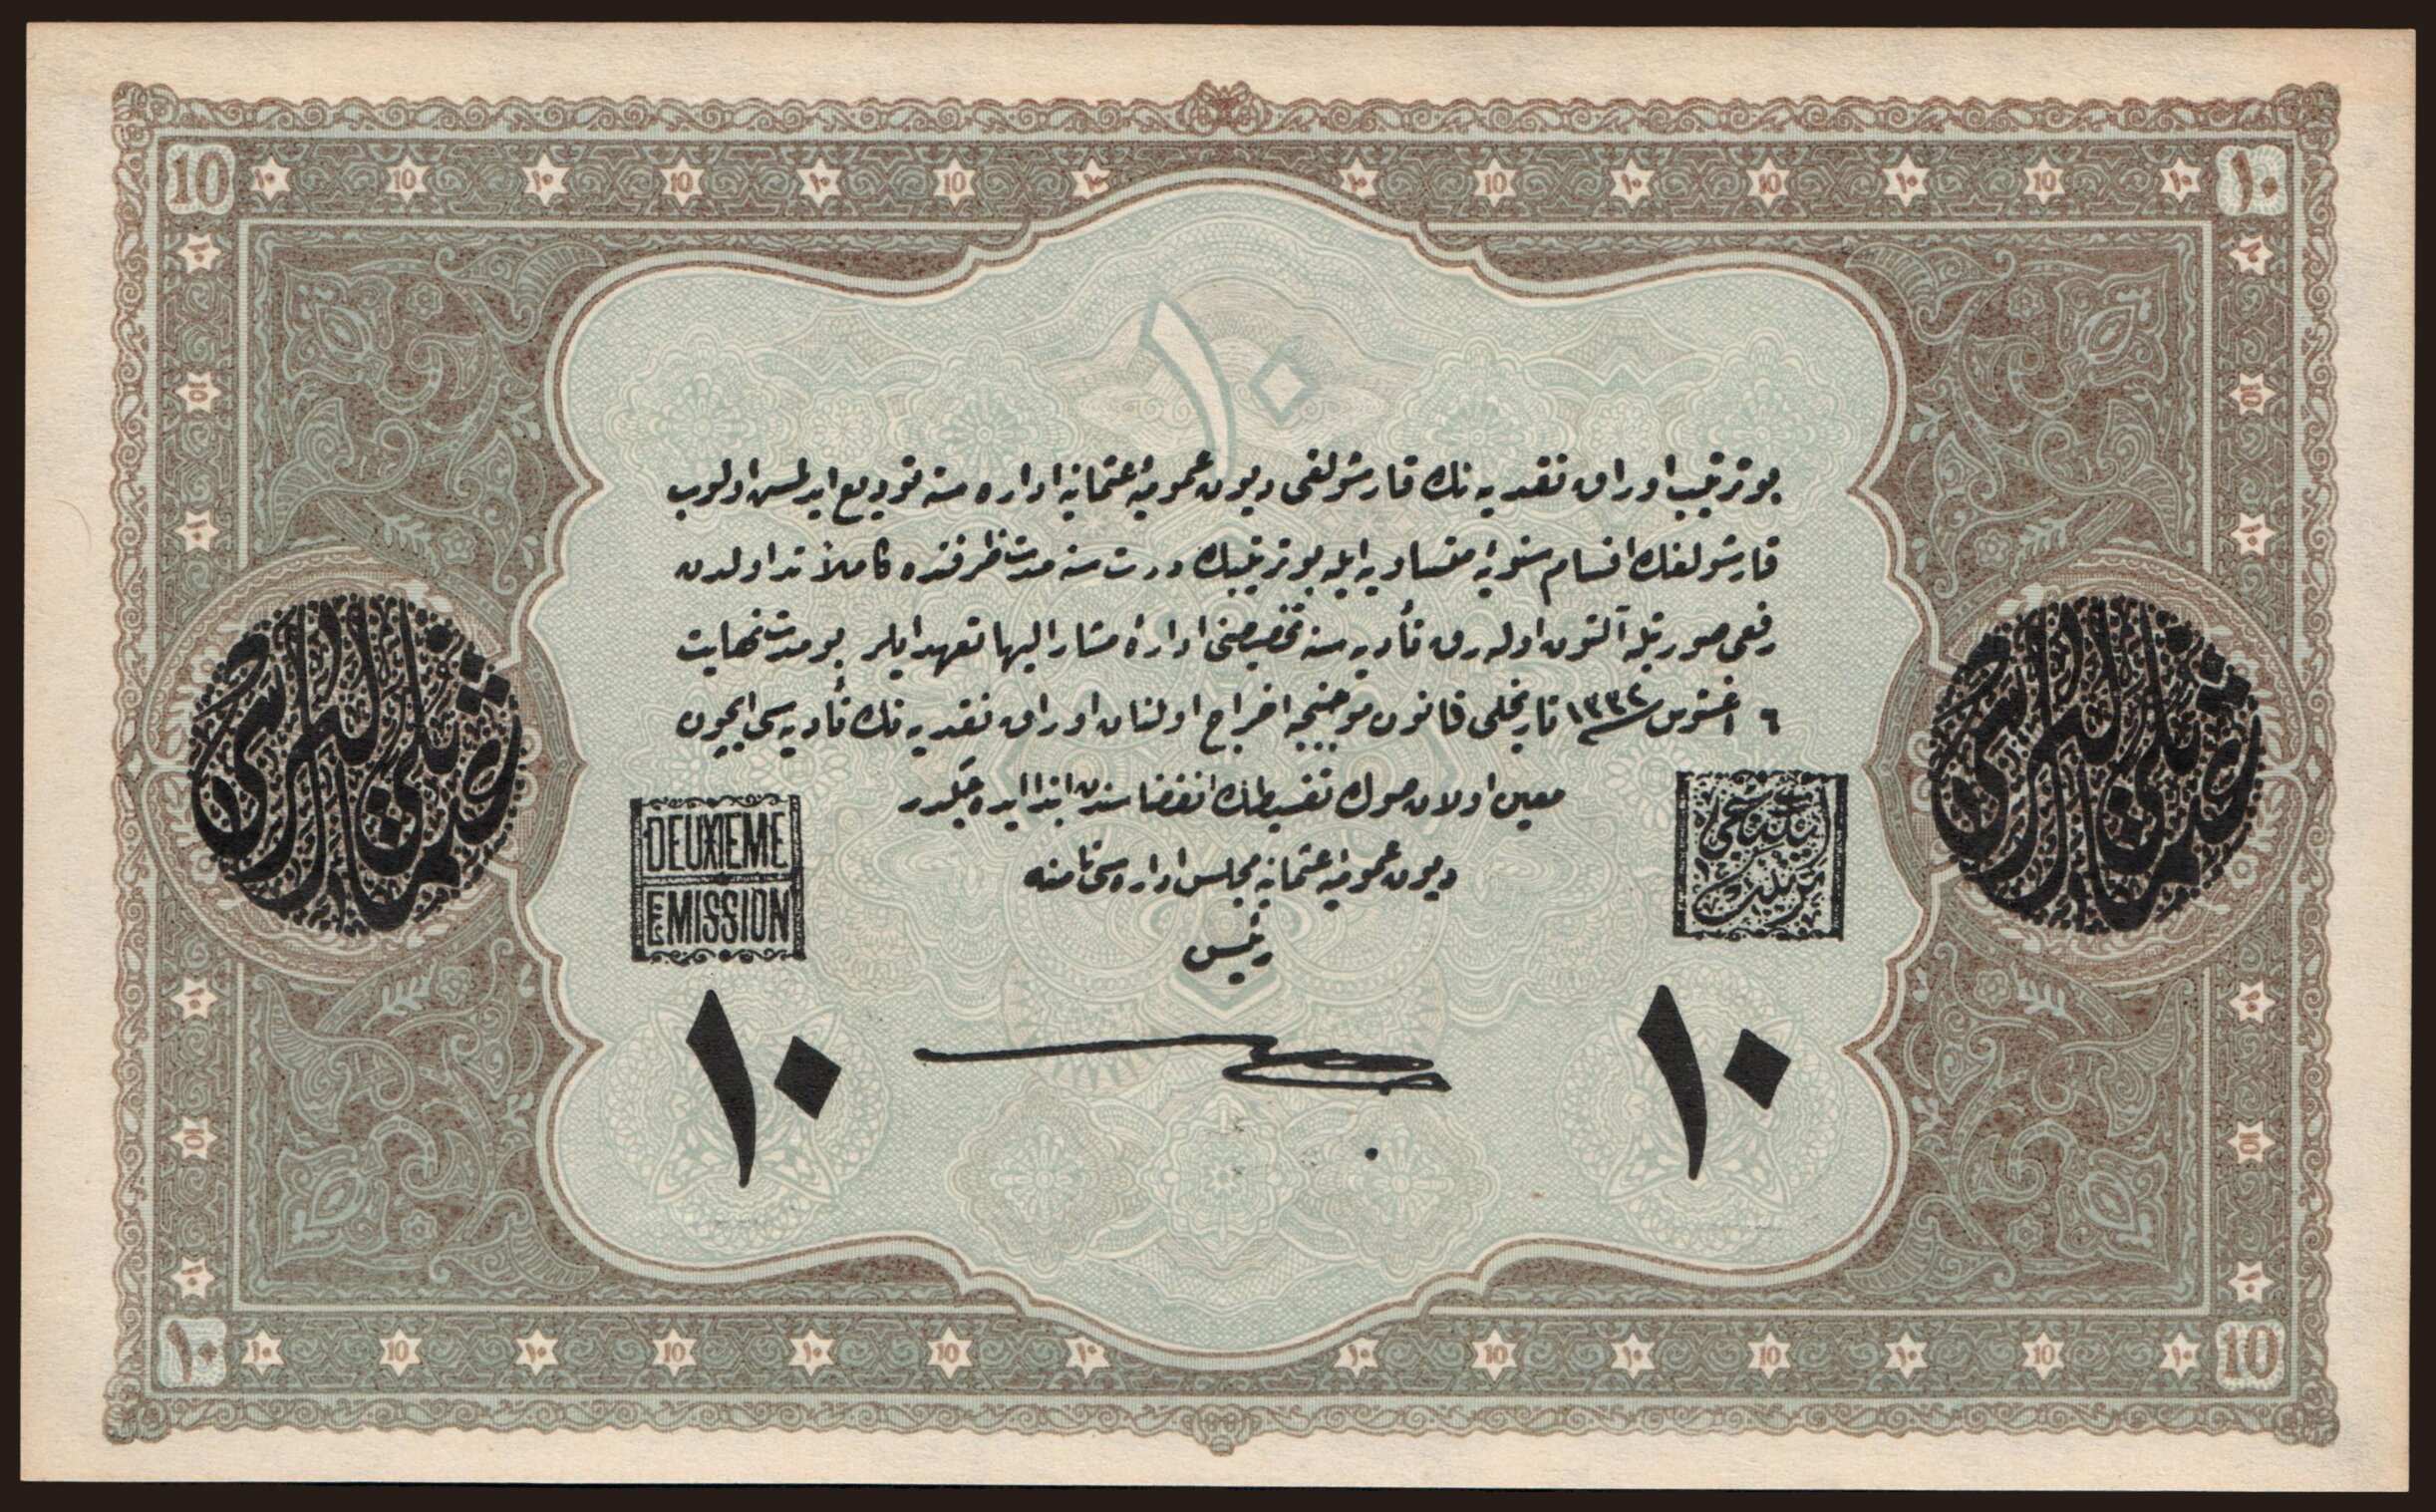 10 ١٠ 10 ١٠ 10 ١٠ 10 ١٠ ١٠ 10 ١٠ 10 ١٠ 10 ١٠ ١٠
١٠
بو ترتیب اوراق نقدیه نك قارشولغی دیون عمومیهٔ عثمانیه اداره سنه تودیع ایدلمش اولوب
قارشولغك اقسام سنویهٔ متساویه ایله بو ترتیبك درت سنه مدت ظرفنده كاملاً تداولدن
رفعی صورتیله آلتون اوله رق تأدیه سنه تخصیصنی ادارهٔ مشار الیها تعهد ایلر بو مدت نهایت
٦ اغستوس سنه ١٣٣٢ تاریخلی قانون موجبنجه اخراج اولنان اوراق نقدیه نك تأدیه سی ایچون
معین اولان صوك تقسیطك انقضاسندن ابتدا ایده جكدر
دیون عمومیهٔ عثمانیه مجلس اداره سی نامنه
رئیس
DEUXIEME
EMISSION
ایكنجی
ترتیب
١٠ ١٠
١٠ ١٠ 10 ١٠ 10 ١٠ 10 ١٠ ١٠ 10 ١٠ 10 ١٠ 10 ١٠ 10